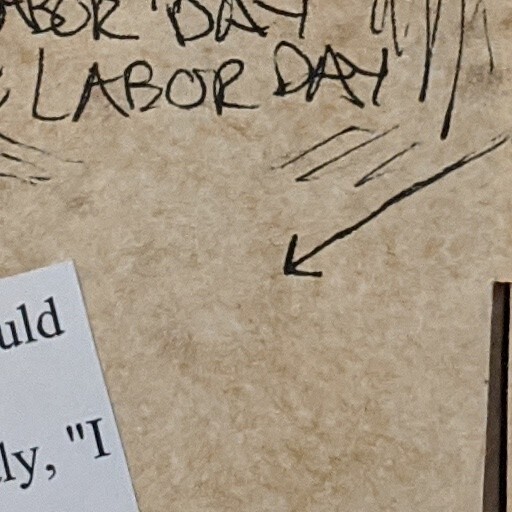 LABOR DAY
LABOR DAY
uld
ly, "I